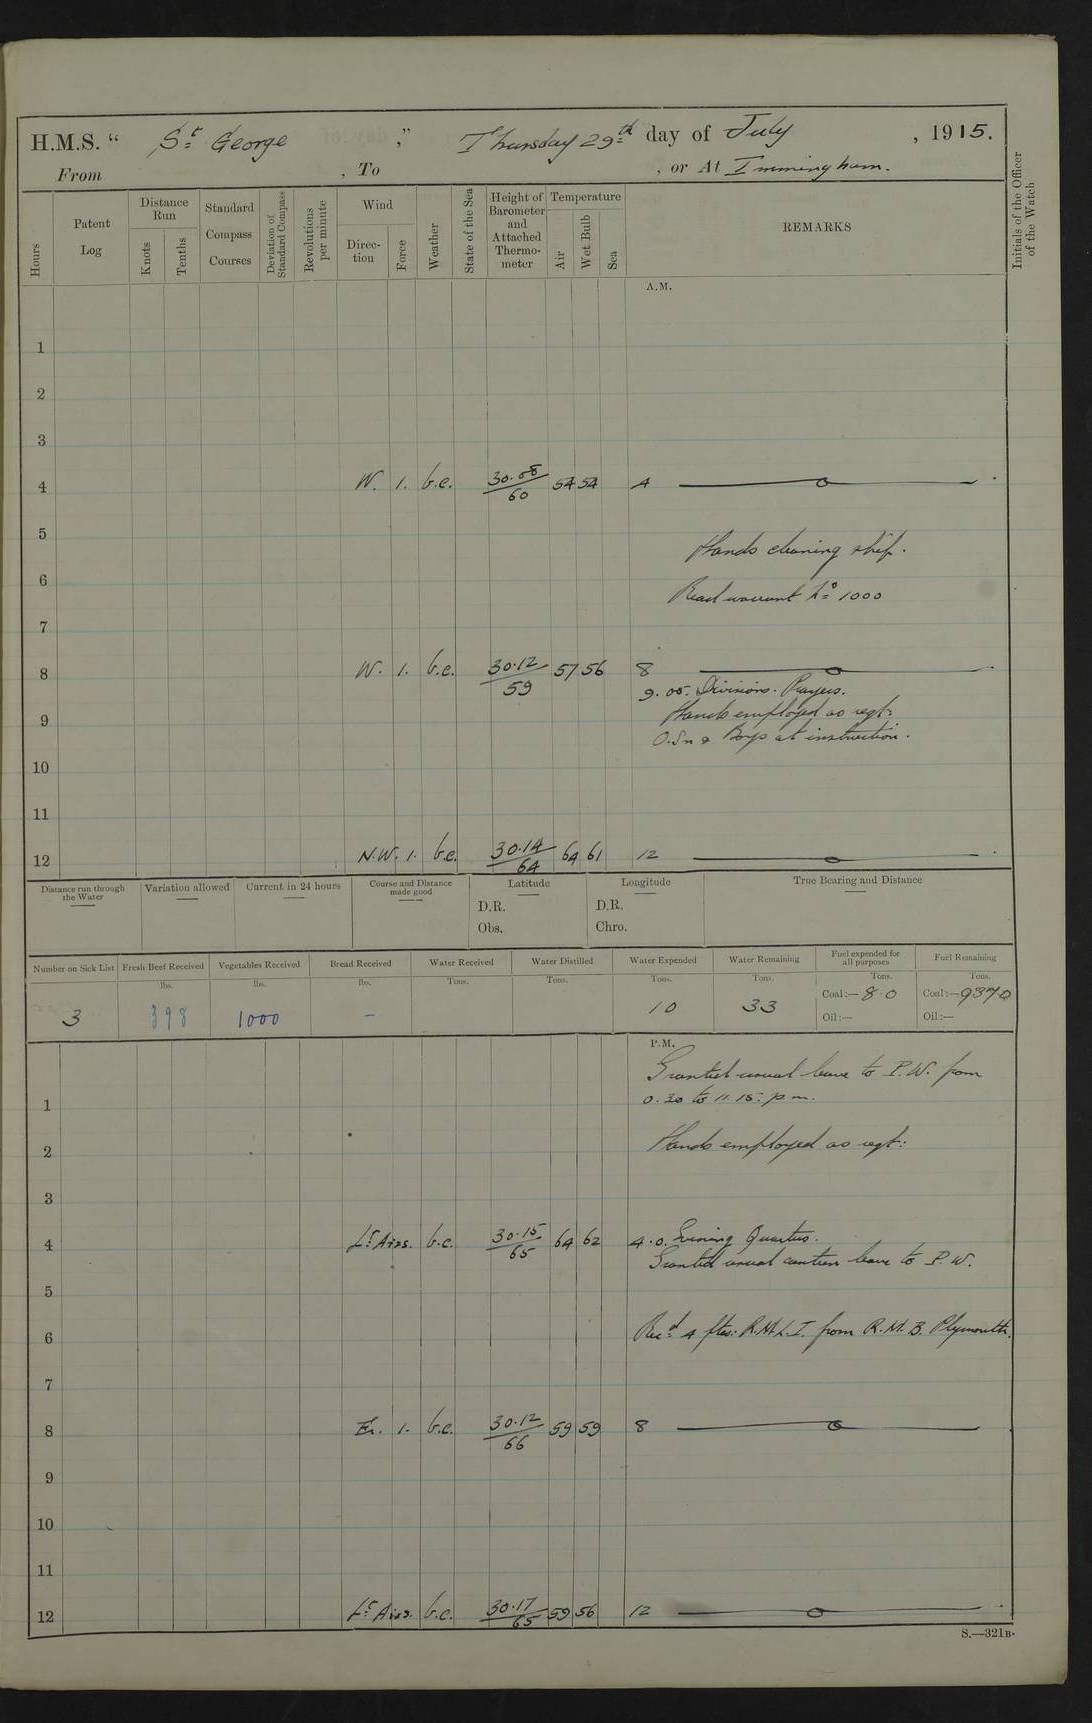 H.M.S. “ St George ,” Thursday 29th day of July , 1915.
From , To , or At Immingham.
Hours
Patent Log
Distance Run
Knots
Tenths
Standard Compass Courses
Deviation of Standard Compass
Revolutions per minute
Wind
Direction
Force
Weather
State of the Sea
Height of Barometer and Attached Thermometer
Temperature
Air
Wet Bulb
Sea
REMARKS
Initials of the Officer of the Watch
A.M.
1
2
3
4 W. 1. b.c. 30.08/60 54 54 4
5 Hands cleaning ship.
6 Read warrant No 1000
7
8 W. 1. b.c. 30.12/59 57 56 8
9.05. Divisions. Prayers.
9 Hands employed as reqt:
O.Sn & Boys at instruction.
10
11
12 N.W. 1. b.c. 30.14/64 64 61 12
Distance run through the Water
Variation allowed
Current in 24 hours
Course and Distance made good
Latitude
D.R.
Obs.
Longitude
D.R.
Chro.
True Bearing and Distance
Number on Sick List
3
Fresh Beef Received
lbs.
398
Vegetables Received
lbs.
1000
Bread Received
lbs.
-
Water Received
Tons.
Water Distilled
Tons.
Water Expended
Tons.
10
Water Remaining
Tons.
33
Fuel expended for all purposes
Tons.
Coal:— 8.0
Oil:—
Fuel Remaining
Tons.
Coal:— 937.0
Oil:—
P.M.
Granted usual leave to P.W. from
1 0.30 to 11.15. p.m.
2 Hands employed as reqt:
3
4 Lt Airs. b.c. 30.15/65 64 62 4.0. Evening Quarters.
Granted usual canteen leave to P.W.
5
6 Recd 4 ptes: R.M.L.I. from R.M.B. Plymouth.
7
8 1. b.c. 30.12/66 59 59 8
9
10
11
12 Lt Airs. b.c. 30.17/65 59 56 12
S.—321B.